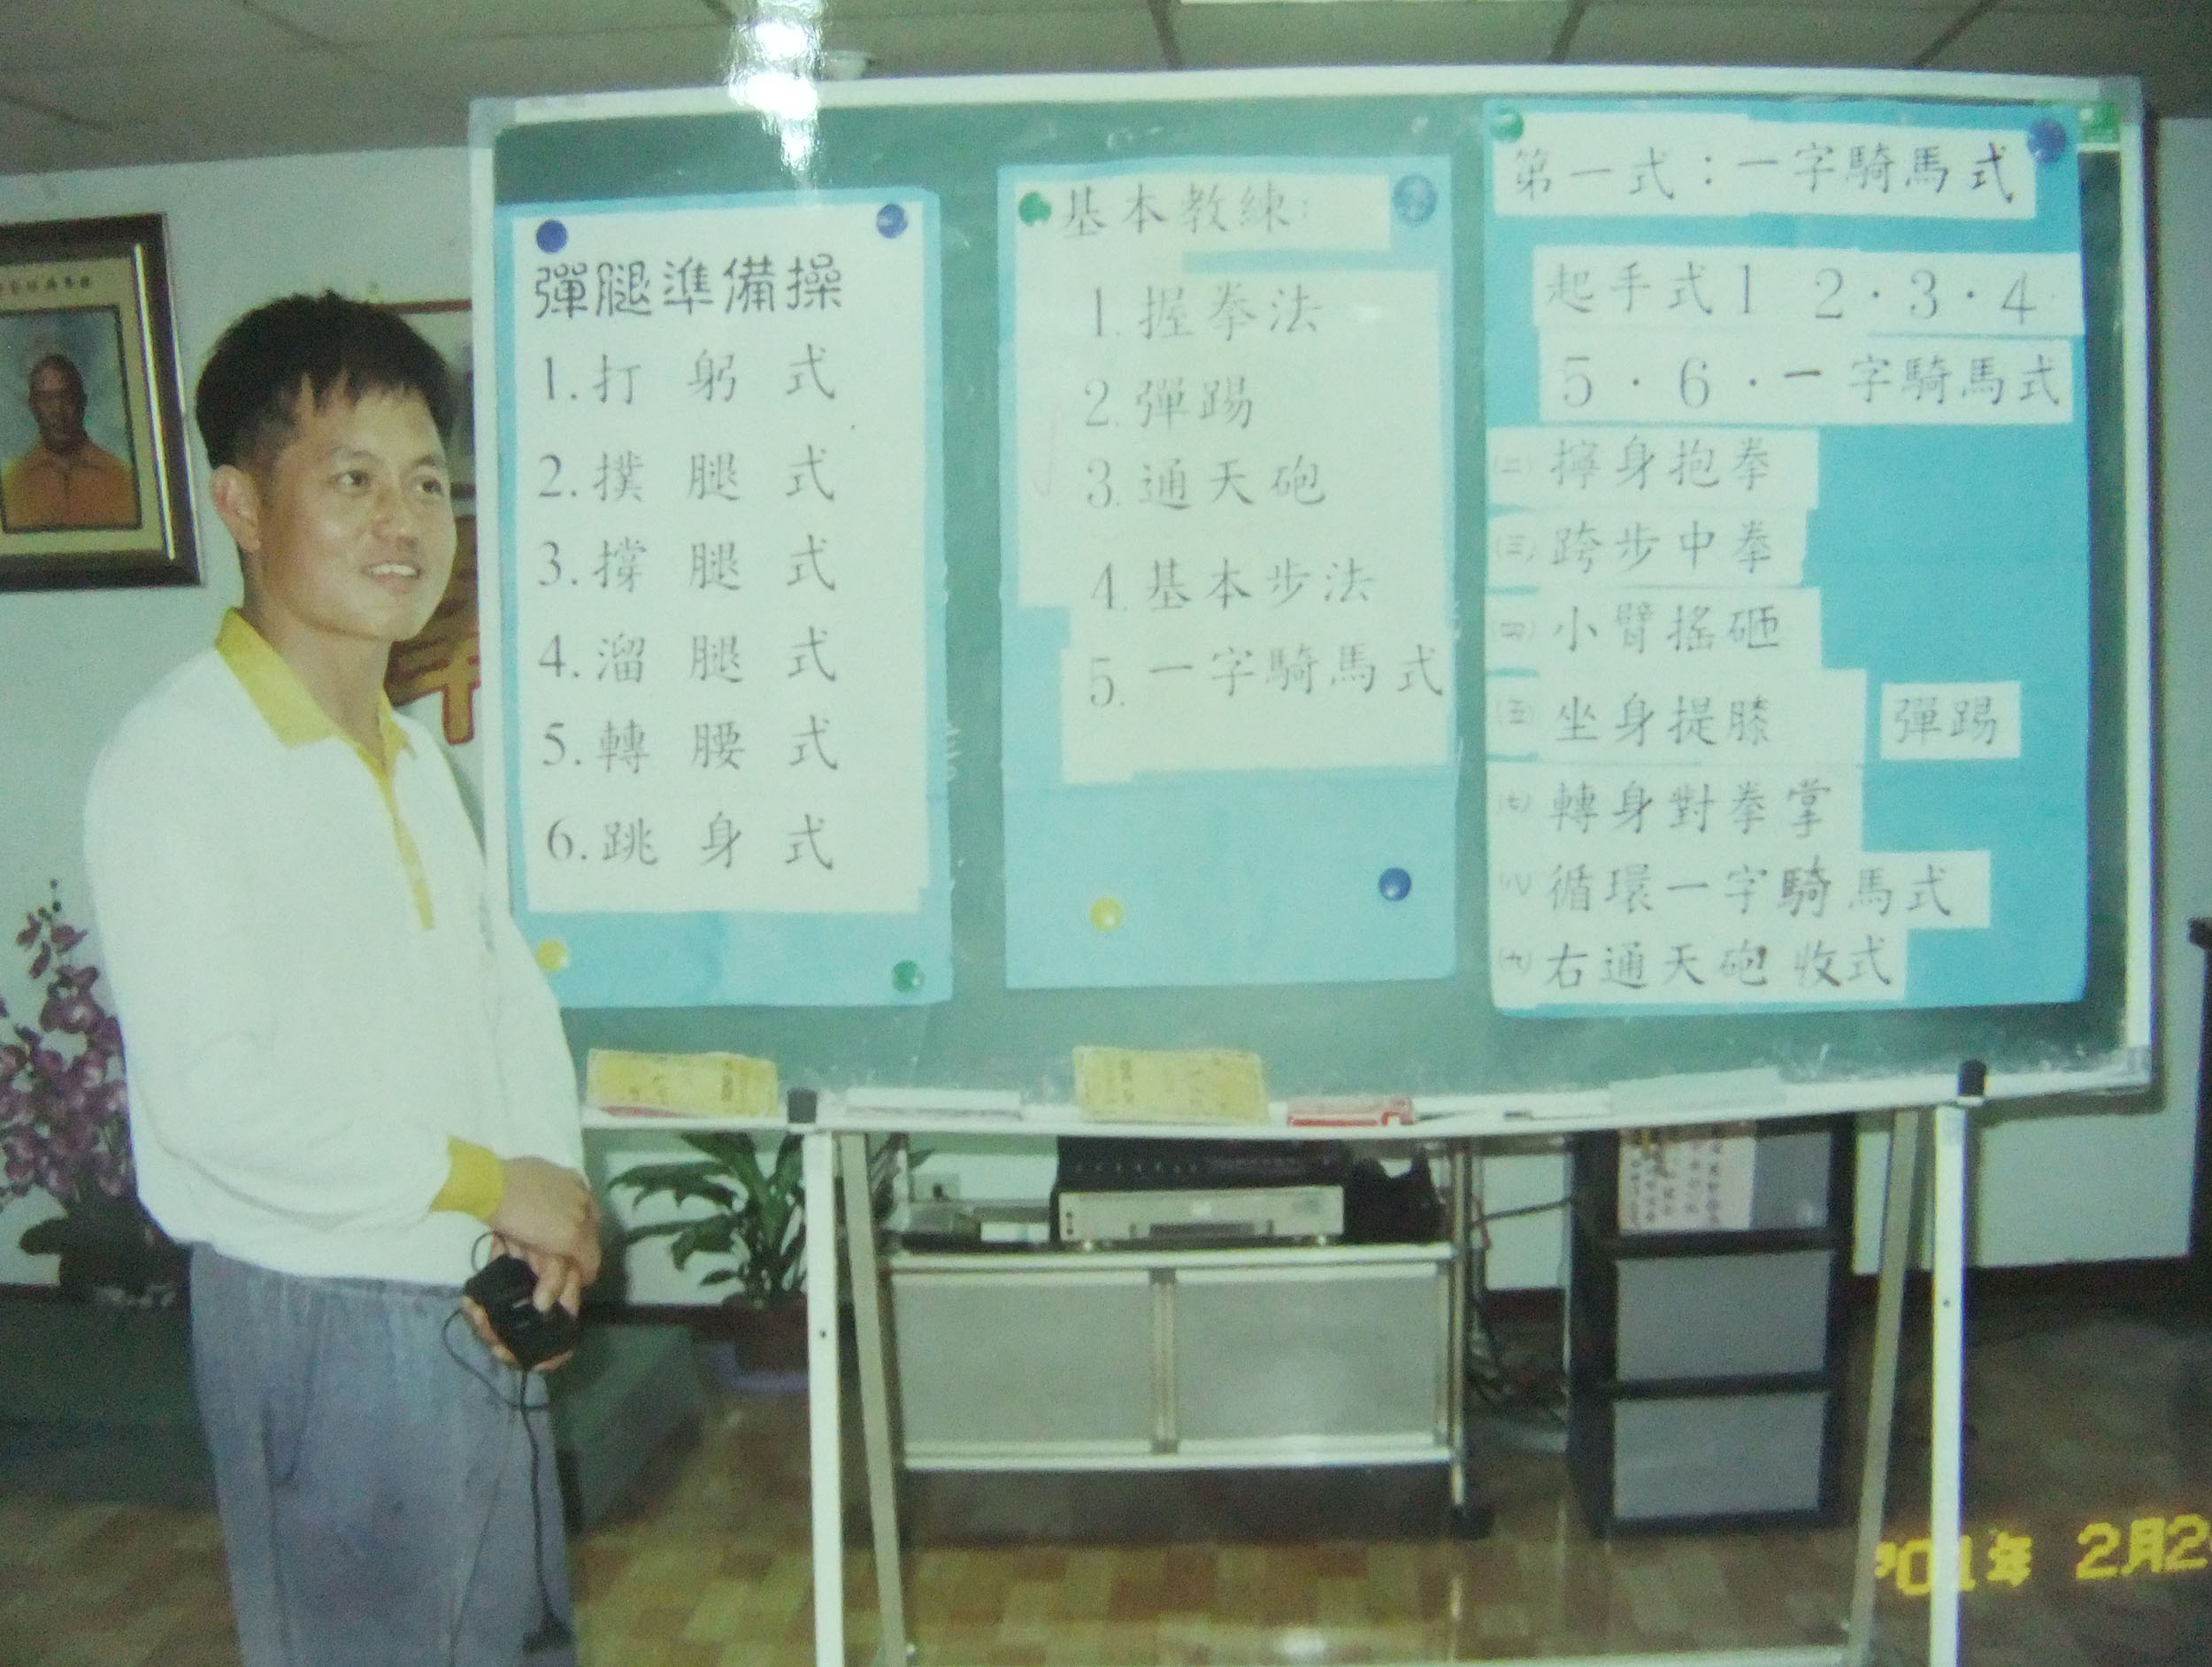 彈腿準備操
1.打躬式
2.撲腿式
3.撐腿式
4.溜腿式
5.轉腰式
6.跳身式
基本教練:
1.握拳法
2.彈踢
3.通天砲
4.基本步法
5.一字騎馬式
第一式:一字騎馬式
起手式1 2·3·4
5·6·一字騎馬式
(二)擰身抱拳
(三)跨步中拳
(四)小臂搖砸
(五)坐身提膝 彈踢
(七)轉身對拳掌
(八)循環一字騎馬式
(九)右通天砲收式
'01年 2月2